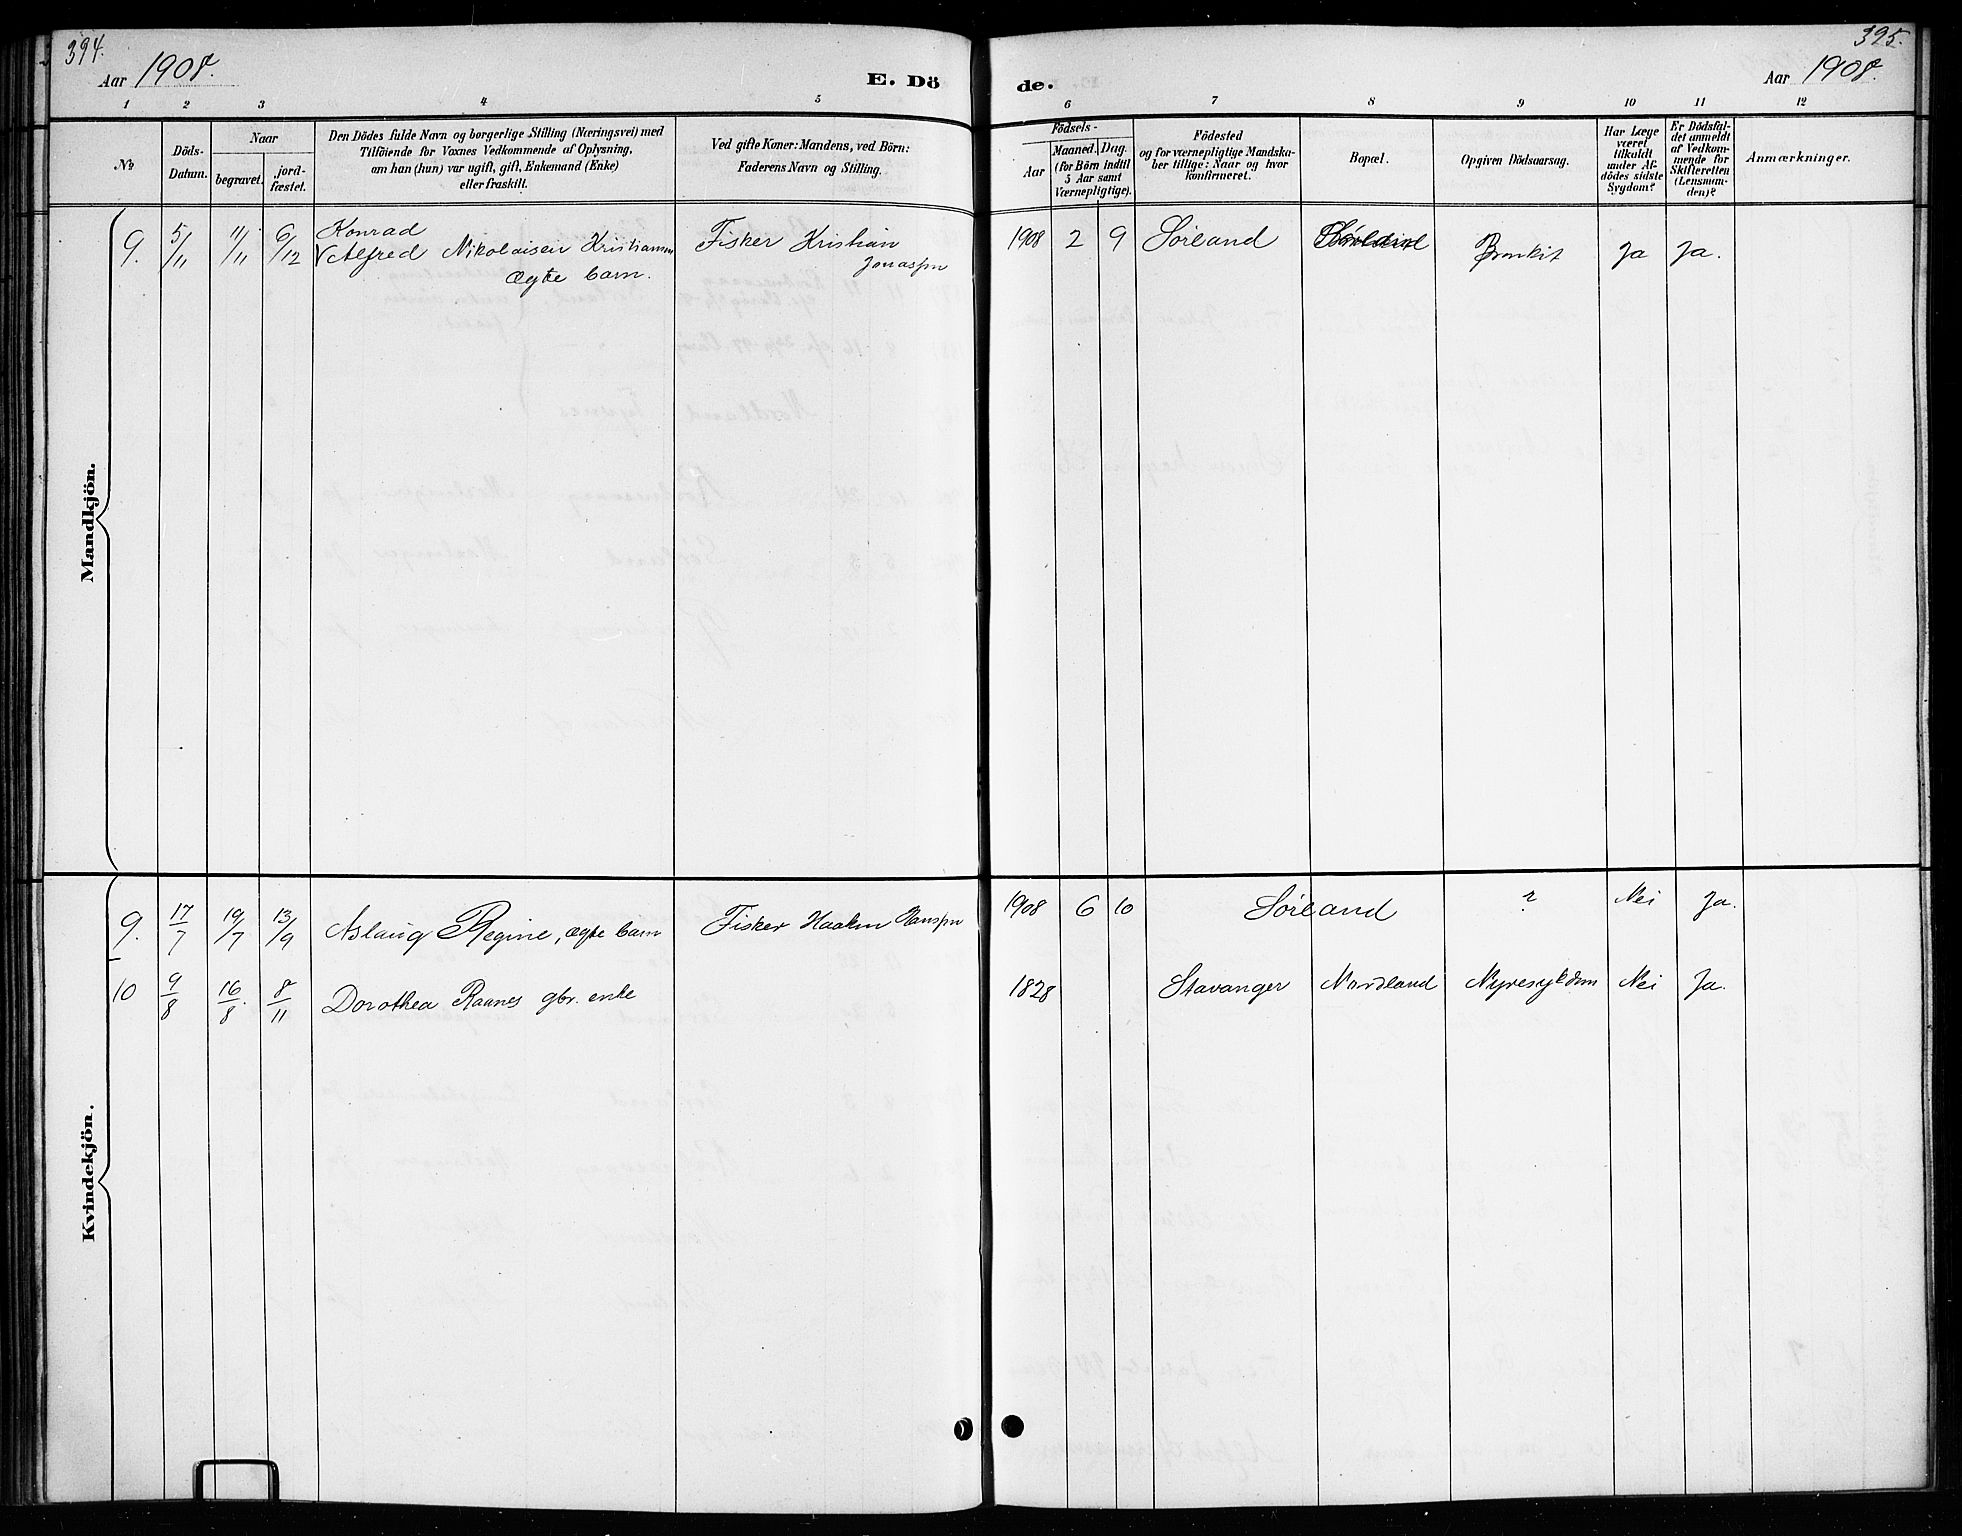 394.
Aar 1908.
E. Dö
1 2 3 4 5
№
Döds-
Datum.
Naar
begravet.
jord-
fæstet.
Den Dödes fulde Navn og borgerlige Stilling (Næringsvei) med
Tilföiende for Voxnes Vedkommende af Oplysning,
om han (hun) var ugift, gift, Enkemand (Enke)
eller fraskilt.
Ved gifte Koner: Mandens, ved Börn:
Faderens Navn og Stilling.
Mandkjön.
9. 5/11 11/11 6/12 Konrad
Alfred Nikolaisen Kristiansen
Ægte barn.
Fisker Kristian
Jonassen
Kvindekjön.
9. 17/7 19/7 13/9 Aslaug Regine, ægte barn Fisker Haakon Hanssen
10 9/8 16/8. 8/11 Dorothea Raanes gbr. enke
395.
de. Aar 1908.
6 7 8 9 10 11 12
Födsels-
Aar
Maaned. Dag.
(for Börn indtil
5 Aar samt
Værnepligtige).
Födested
og for værnepligtige Mandska-
ber tillige: Naar og hvor
konfirmeret.
Bopæl.
Opgiven Dödsaarsag.
Har Læge
været
tilkaldt
under Af-
dödes sidste
Sygdom?
Er Dödsfal-
det anmeldt
af Vedkom-
mende for
Skifteretten
(Lensman-
den)?
Anmærkninger.
1908 2 9 Sörland Sörland Bronkit Ja Ja.
1908 6 10 Sörland ? Nei Ja.
1828 Stavanger Nordland Nyresykdom Nei Ja.